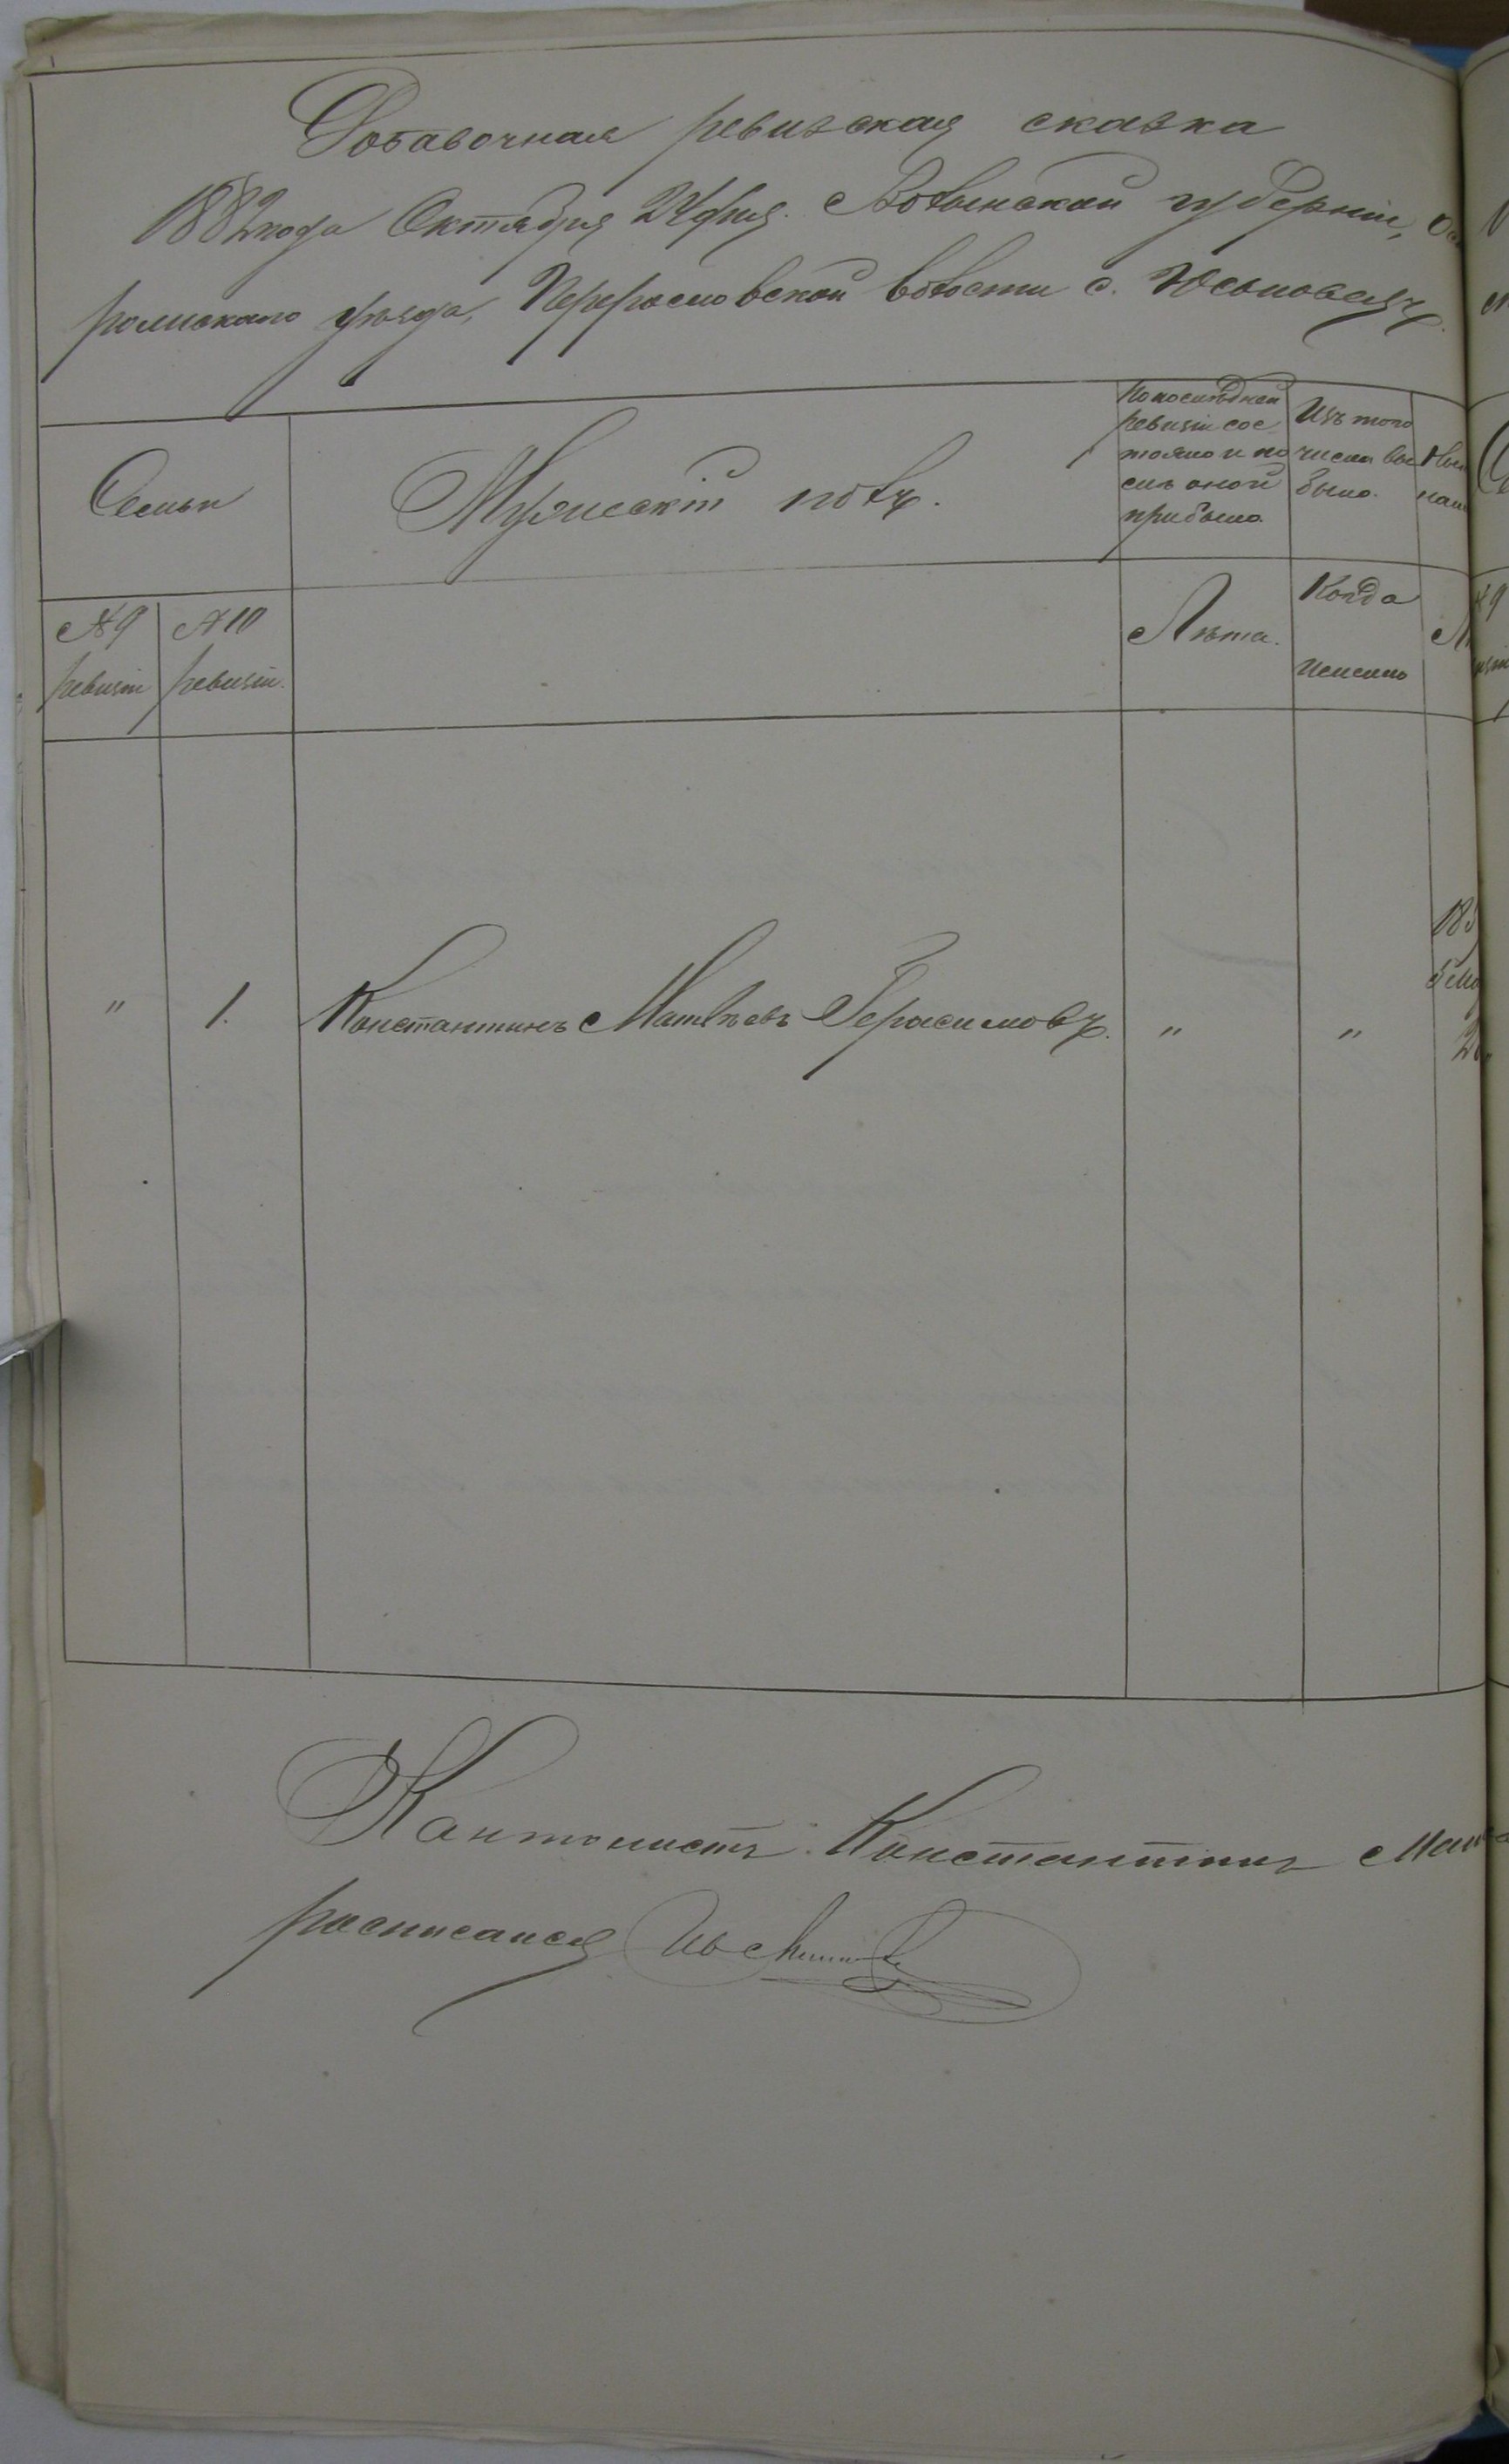 Добавочная ревизская сказка
1882 года Октября 24 дня. Волынской губерніи, Ост
рожскаго уѣзда, Перерословской волости с. Юсьповецъ.
Семьи
Мужескій полъ.
По последней
ревизіи сос
тояло и по
слѣ оной
прибыло
Изъ того
числа вы
было.
№ 9
ревизіи
№ 10
ревизіи.
Лѣта.
Когда
именно
"
1.
Константинъ Матвѣевъ Герасимовъ.
"
"
183
Кантонистъ Константинъ Мат
росписался